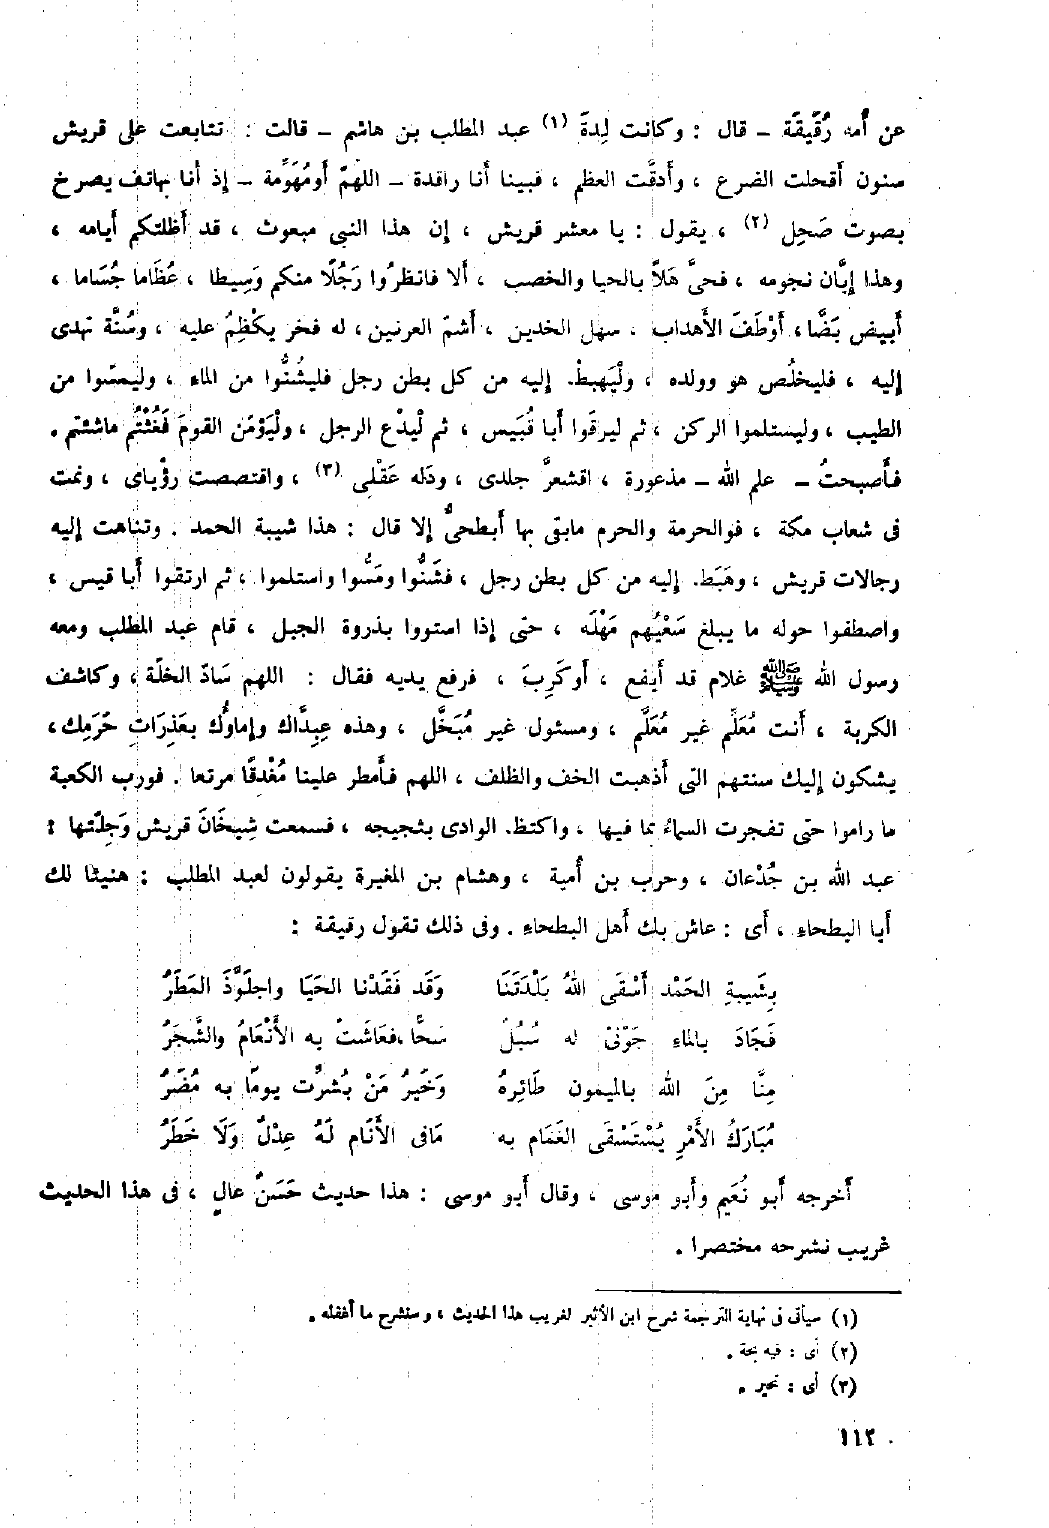 عن أُمه رُقَيقَة – قال : وكانت لِدةَ (١) عبد المطلب بن هاشم – قالت : تتابعت على قريش
سنون أقحلت الضرع ، وأَدقَّت العظم ، فبينا أَنا راقدة – اللهمّ أَومُهَوِّمة – إذ أنا بهاتف يصرخ
بصوت صَحِل (٢) ، يقول : يا معشر قريش ، إن هذا النبى مبعوث ، قد أظلتكم أَيامه ،
وهذا إبَّان نجومه ، فحىَّ هَلاً بالحيا والخصب ، ألا فانظرُوا رَجُلًا منكم وَسِيطا ، عُظَاما جُسَاما ،
أَبيض بَضًّا، أَوْطَفَ الأَهداب ، سهل الخدين ، أَشمّ العرنين، له فخر يكْظِمُ عليه ، وسُنَّة تهدى
إليه ، فليخلُص هو وولده ، ولْيَهبطْ. إليه من كل بطن رجل فليشُنُّوا من الماء ، وليمسّوا من
الطيب ، وليستلموا الركن ، ثم ليرقَوا أَبا قُبَيس ، ثم لْيدْع الرجل ، ولْيَؤمّن القومَ فَغُثْتُم ماشئتم .
فأَصبحتُ – علم الله – مذعورة ، اقشعرَّ جلدى ، ودَله عَقْلِى (٣) ، واقتصصت رؤْياى ، ونمت
فى شعاب مكة ، فوالحرمة والحرم مابقى بها أَبطحىٌّ إلا قال : هذا شيبة الحمد . وتناهت إليه
رجالات قريش ، وهَبَط. إليه من كل بطن رجل ، فشَنُّوا ومَسُّوا واستلموا ، ثم ارتقوا أَبا قيس ،
واصطفوا حوله ما يبلغ سَعْيُهم مَهْلَه ، حتى إذا استووا بذروة الجبل ، قام عبد المطلب ومعه
رسول الله ﷺ غلام قد أَيفع ، أَو كَرِبَ ، فرفع يديه فقال : اللهم سَادّ الخلّة ، وكاشف
الكربة ، أَنت مُعَلِّم غير مُعَلَّم ، ومسئول غير مُبَخَّل ، وهذه عِبِدَّاك وإماوُك بعَذِرَاتِ حَرَمِك،
يشكون إليك سنتهم التى أَذهبت الخف والظلف ، اللهم فأَمطر علينا مُغْدِقًا مرتعا . فورب الكعبة
ما راموا حتى تفجرت السماءُ بما فيها ، واكتظ. الوادى بثجيجه ، فسمعت شِيخَانَ قريش وَجِلَّتها :
عبد الله بن جُدْعان ، وحرب بن أُمية ، وهشام بن المغيرة يقولون لعبد المطلب : هنيئا لك
أَبا البطحاء ، أَى : عاش بك أَهل البطحاء . وفى ذلك تقول رقيقة :
بِشَيبةِ الحَمْد أَسْقَى اللهُ بَلْدَتَنَا وَقَد فَقَدْنا الحَيَا واجلَوَّذَ المَطَرُ
فَجَادَ بالماء جَوْنىّ له سُبُلٌ سَحًّا ،فعَاشَتْ به الأَنْعَامُ والشَّجَرُ
مِنًّا مِنَ الله بالميمون طَائِرهُ وَخَيرُ مَنْ بُشِّرَت يومًا به مُضَرُ
مُبَارَكُ الأَمْرِ يُسْتَسْقَى الغَمَام به مَافى الأَنَام لَهُ عِدْلٌ وَلَا خَطَرُ
أَخرجه أَبو نُعَيم وأَبو موسى ، وقال أَبو موسى : هذا حديث حَسَنٌ عالٍ ، فى هذا الحديث
غريب نشرحه مختصرا .
(١) سيأتى فى نهاية الترجمة شرح ابن الأثير لغريب هذا الحديث ، وسنشرح ما أغفله .
(٢) أى : فيه بحة .
(٣) أى : تحير .
١١٢